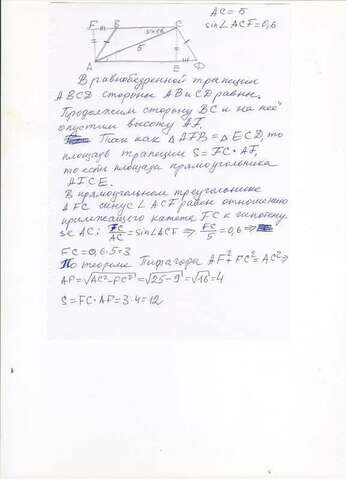 AC = 5
sin∠ACF = 0,6
F B C
5
A E D
В равнобедренной трапеции
ABCD стороны AB и CD равны.
Продолжим сторону BC и на неё
опустим высоту AF.
Так как △AFB = △ECD, то
площадь трапеции S = FC · AF,
то есть площадь прямоугольника
AFCE.
В прямоугольном треугольнике
AFC синус ∠ACF равен отношению
прилежащего катета FC к гипотену-
зе AC; FC/AC = sin∠ACF ⇒ FC/5 = 0,6 ⇒
FC = 0,6·5 = 3
По теореме Пифагора AF² + FC² = AC² ⇒
AF = √AC² - FC² = √25 - 9 = √16 = 4
S = FC · AF = 3 · 4 = 12